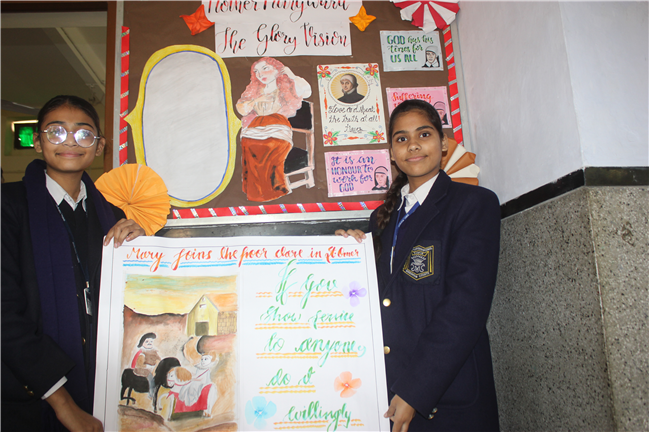 Mother Mary Ward
The Glory Vision
GOD has his
times for
US ALL
Love and speak
the truth at all
times
Suffering
It is an
HONOUR to
work for
GOD
Mary joins the poor dare in
If you
Show Service
to anyone,
do it
willingly